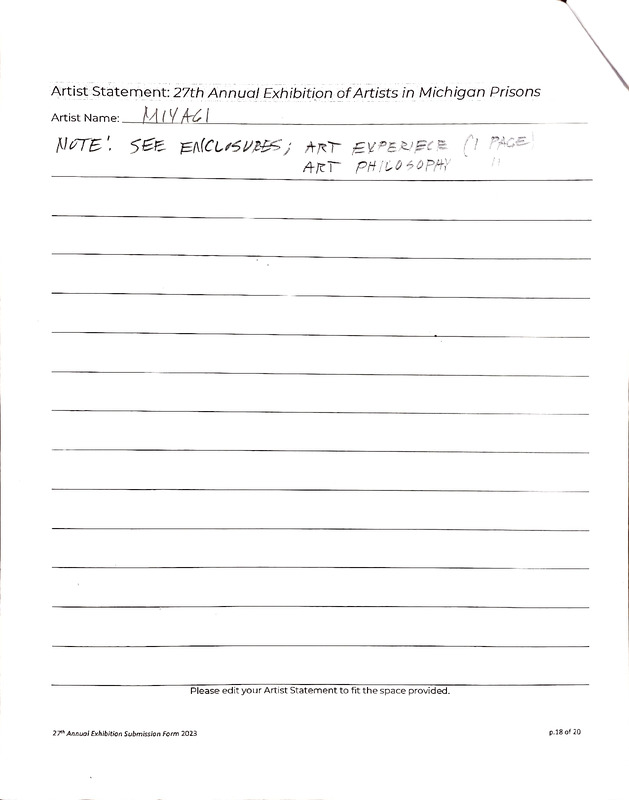 Artist Statement: 27th Annual Exhibition of Artists in Michigan Prisons
Artist Name: MIYAGI
NOTE! SEE ENCLOSURES; ART EXPERIECE (1 PAGE)
ART PHILOSOPHY "
Please edit your Artist Statement to fit the space provided.
27th Annual Exhibition Submission Form 2023 p.18 of 20